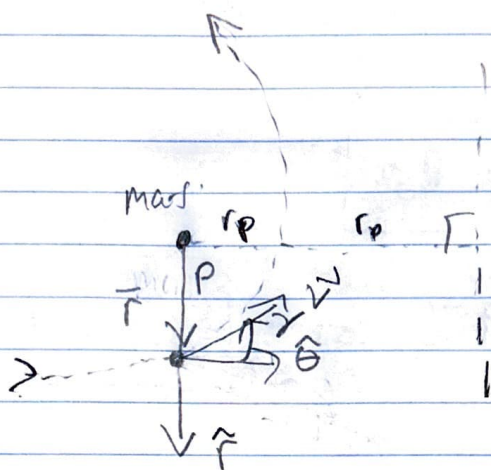 Mars
rp rp
P
r̄
γ v⃗
θ̂
r̂